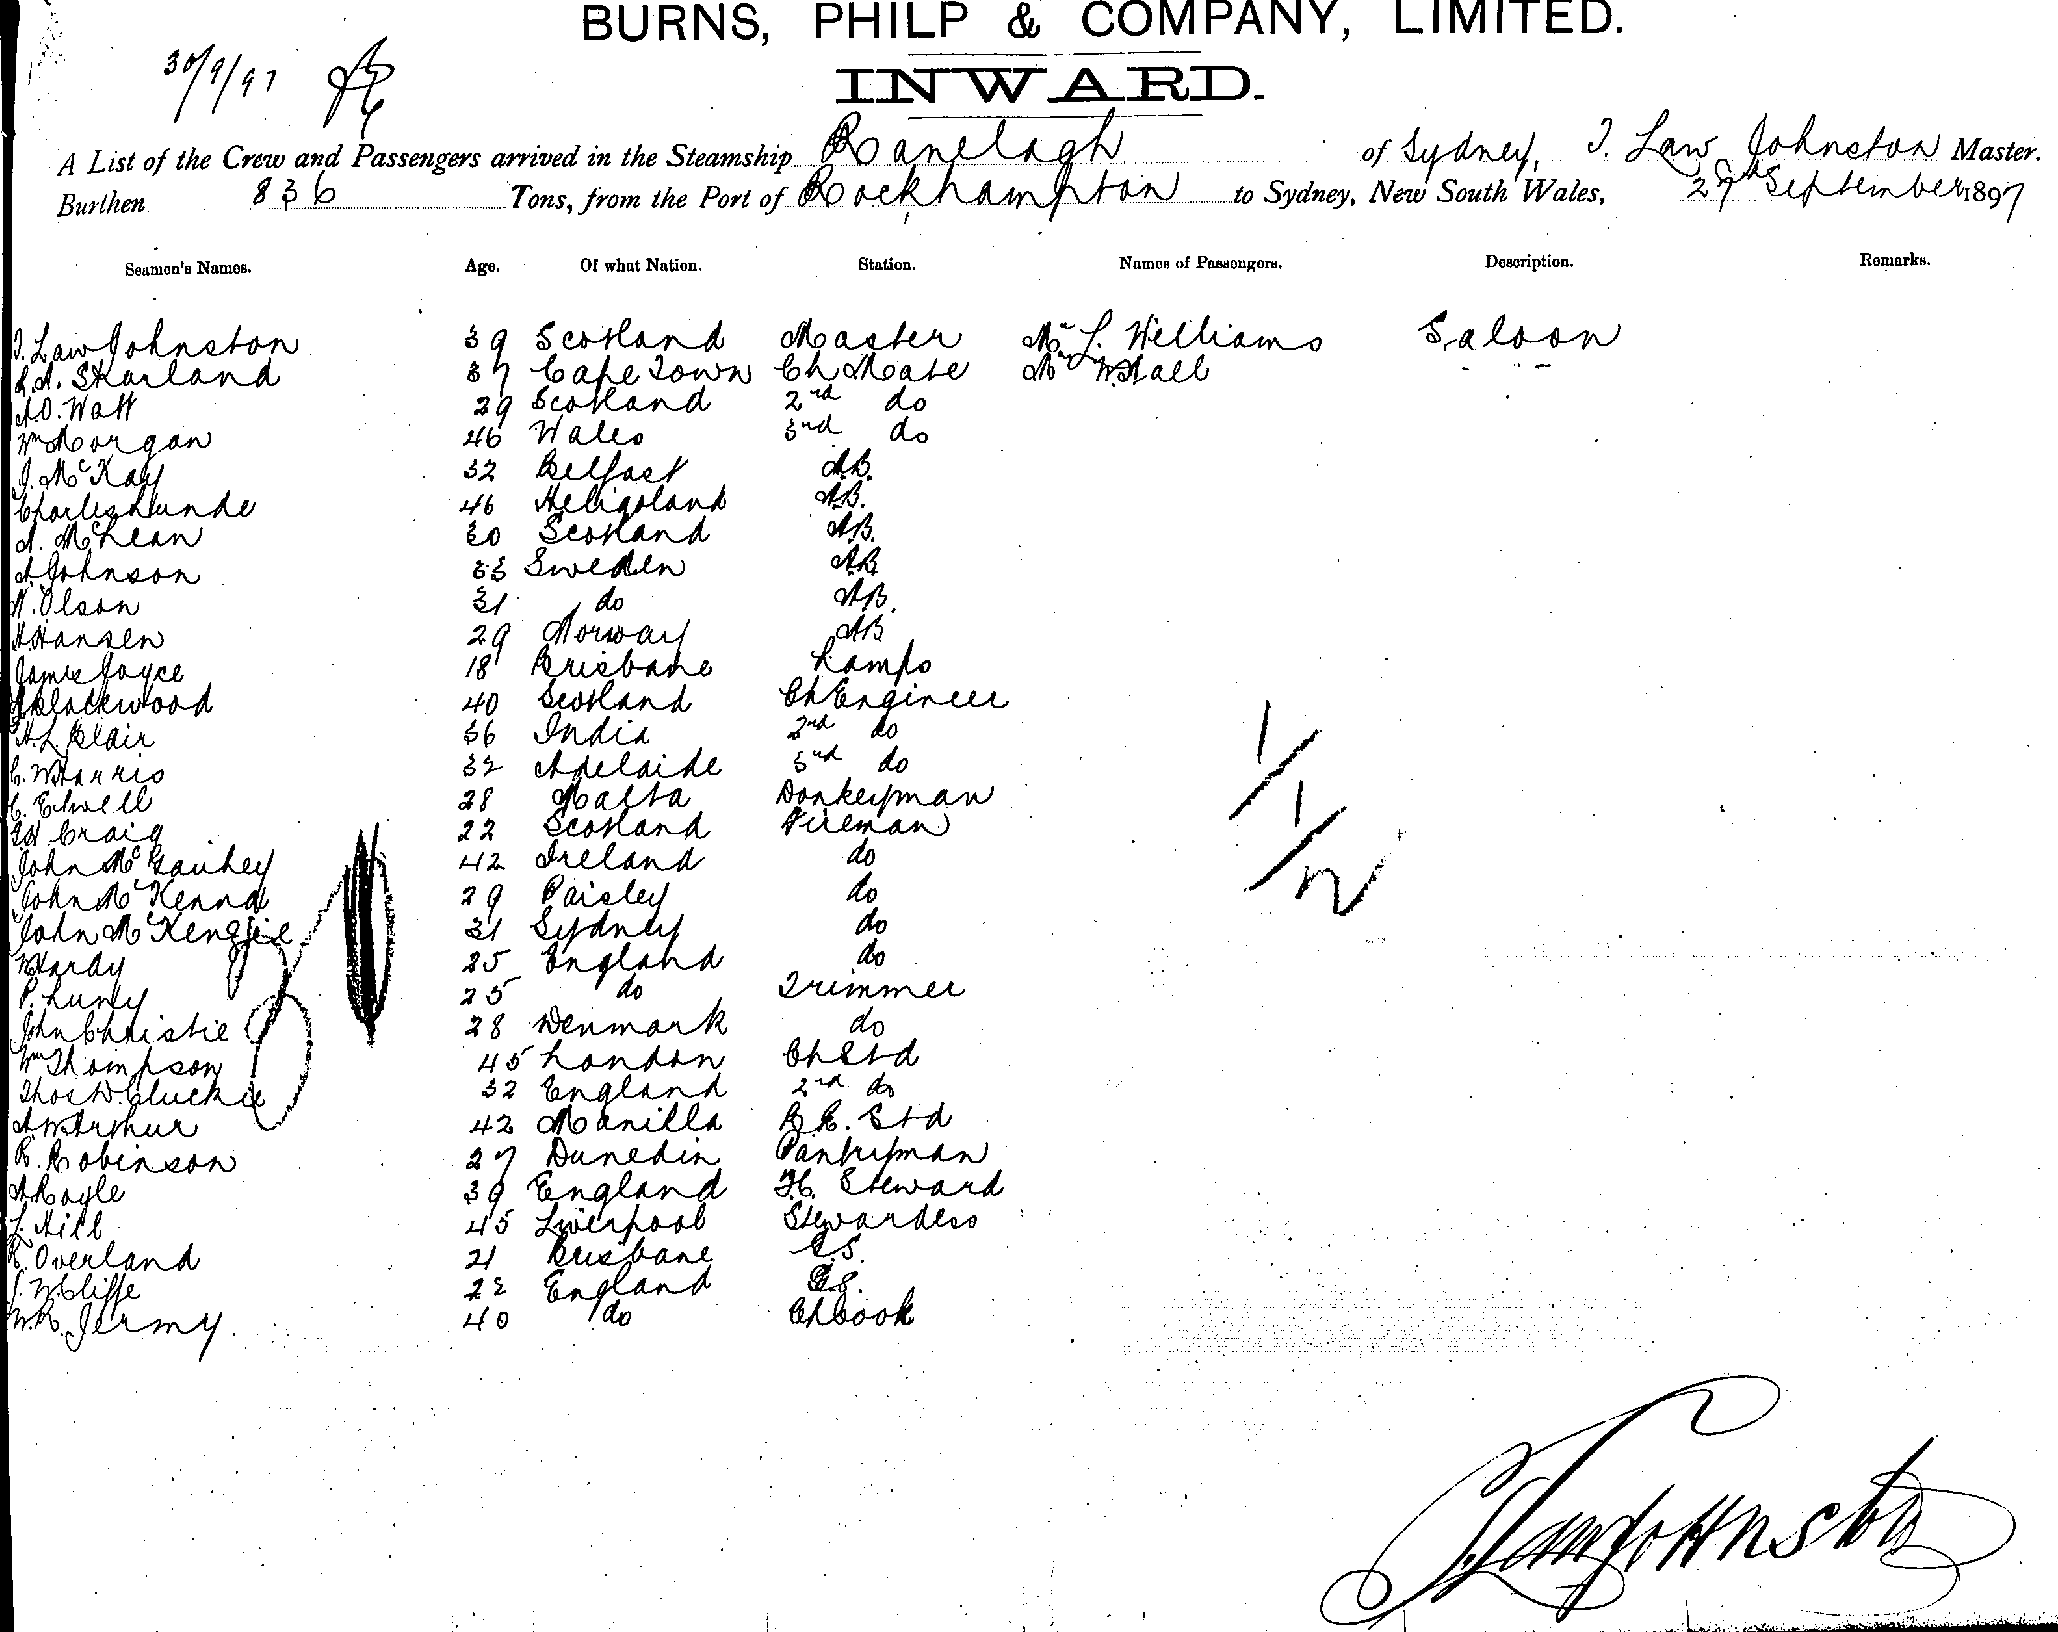 BURNS, PHILP & COMPANY, LIMITED.
30/9/97
INWARD.
A List of the Crew and Passengers arrived in the Steamship Ranelagh of Sydney, J. Law Johnston Master.
Burthen 836 Tons, from the Port of Rockhampton to Sydney, New South Wales, 29th September 1897
Seamen's Names. Age. Of what Nation. Station. Names of Passengers. Description. Remarks.
J. Law Johnston 39 Scotland Master Mr L. Williams Saloon
Skarland 37 Cape Town Ch Mate Mr W. Hall
A.D. Watt 29 Scotland 2nd do
Wm Morgan 46 Wales 3rd do
J. McKay 32 Belfast AB.
Charles Lunde 46 Heligoland AB.
A. McLean 30 Scotland AB.
A. Johnson 33 Sweden AB
Olson 31 do AB.
Hansen 29 Norway AB
James Joyce 18 Brisbane Lamps
Blackwood 40 Scotland Ch Engineer
A.L. Blair 36 India 2nd do
C. W. Harris 32 Adelaide 3rd do
C. Etwell 28 Malta Donkeyman
Craig 22 Scotland Fireman
John McGauhey 42 Ireland do
John McKenna 29 Paisley do
John McKenzie 31 Sydney do
W Hardy 25 England do
P. Luny 25 do Trimmer
John Christie 28 Denmark do
Wm Thompson 45 London Ch Std
Thos W. Cluckie 32 England 2nd do
A. W. Arthur 42 Manilla B.R. Std
R. Robinson 27 Dunedin Pantryman
A Royle 39 England F.C. Steward
L. Hill 45 Liverpool Stewardess
Overland 21 Brisbane C.S.
J. W. Cliffe 22 England C.S.
W.R. Jermy. 40 do Ch Cook
J. Law Johnston